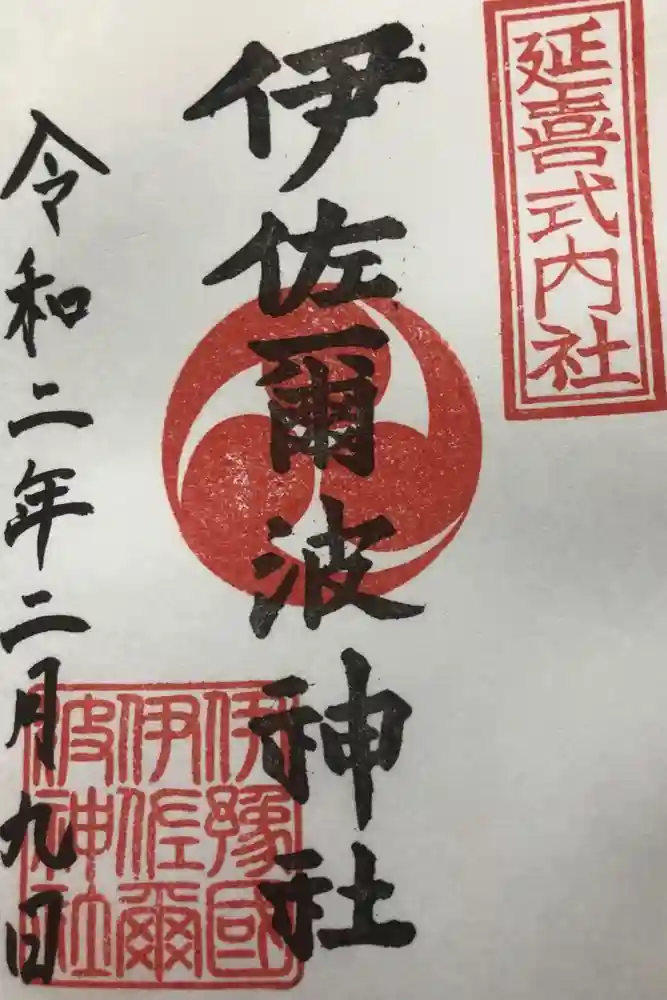 延喜式内社
伊佐爾波神社
令和二年二月九日
伊豫國
伊佐爾
波神社